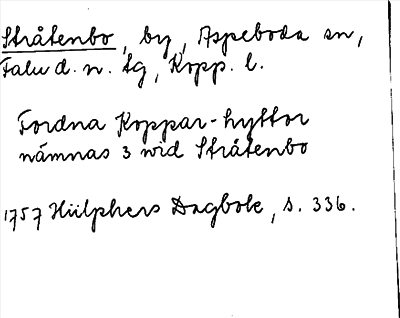 Stråtenbo, by, Aspeboda sn,
Falu d. n. tg, Kopp. l.
Fordna Koppar-hyttor
nämnas 3 wid Stråtenbo
1757 Hülphers Dagbok, s. 336.